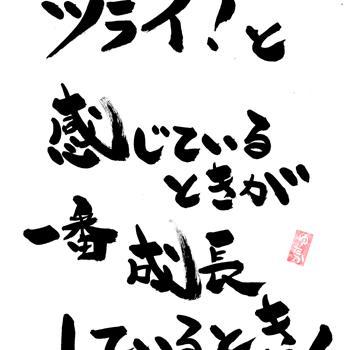 ツライ！と
感じている
ときが
一番 成長
しているとき